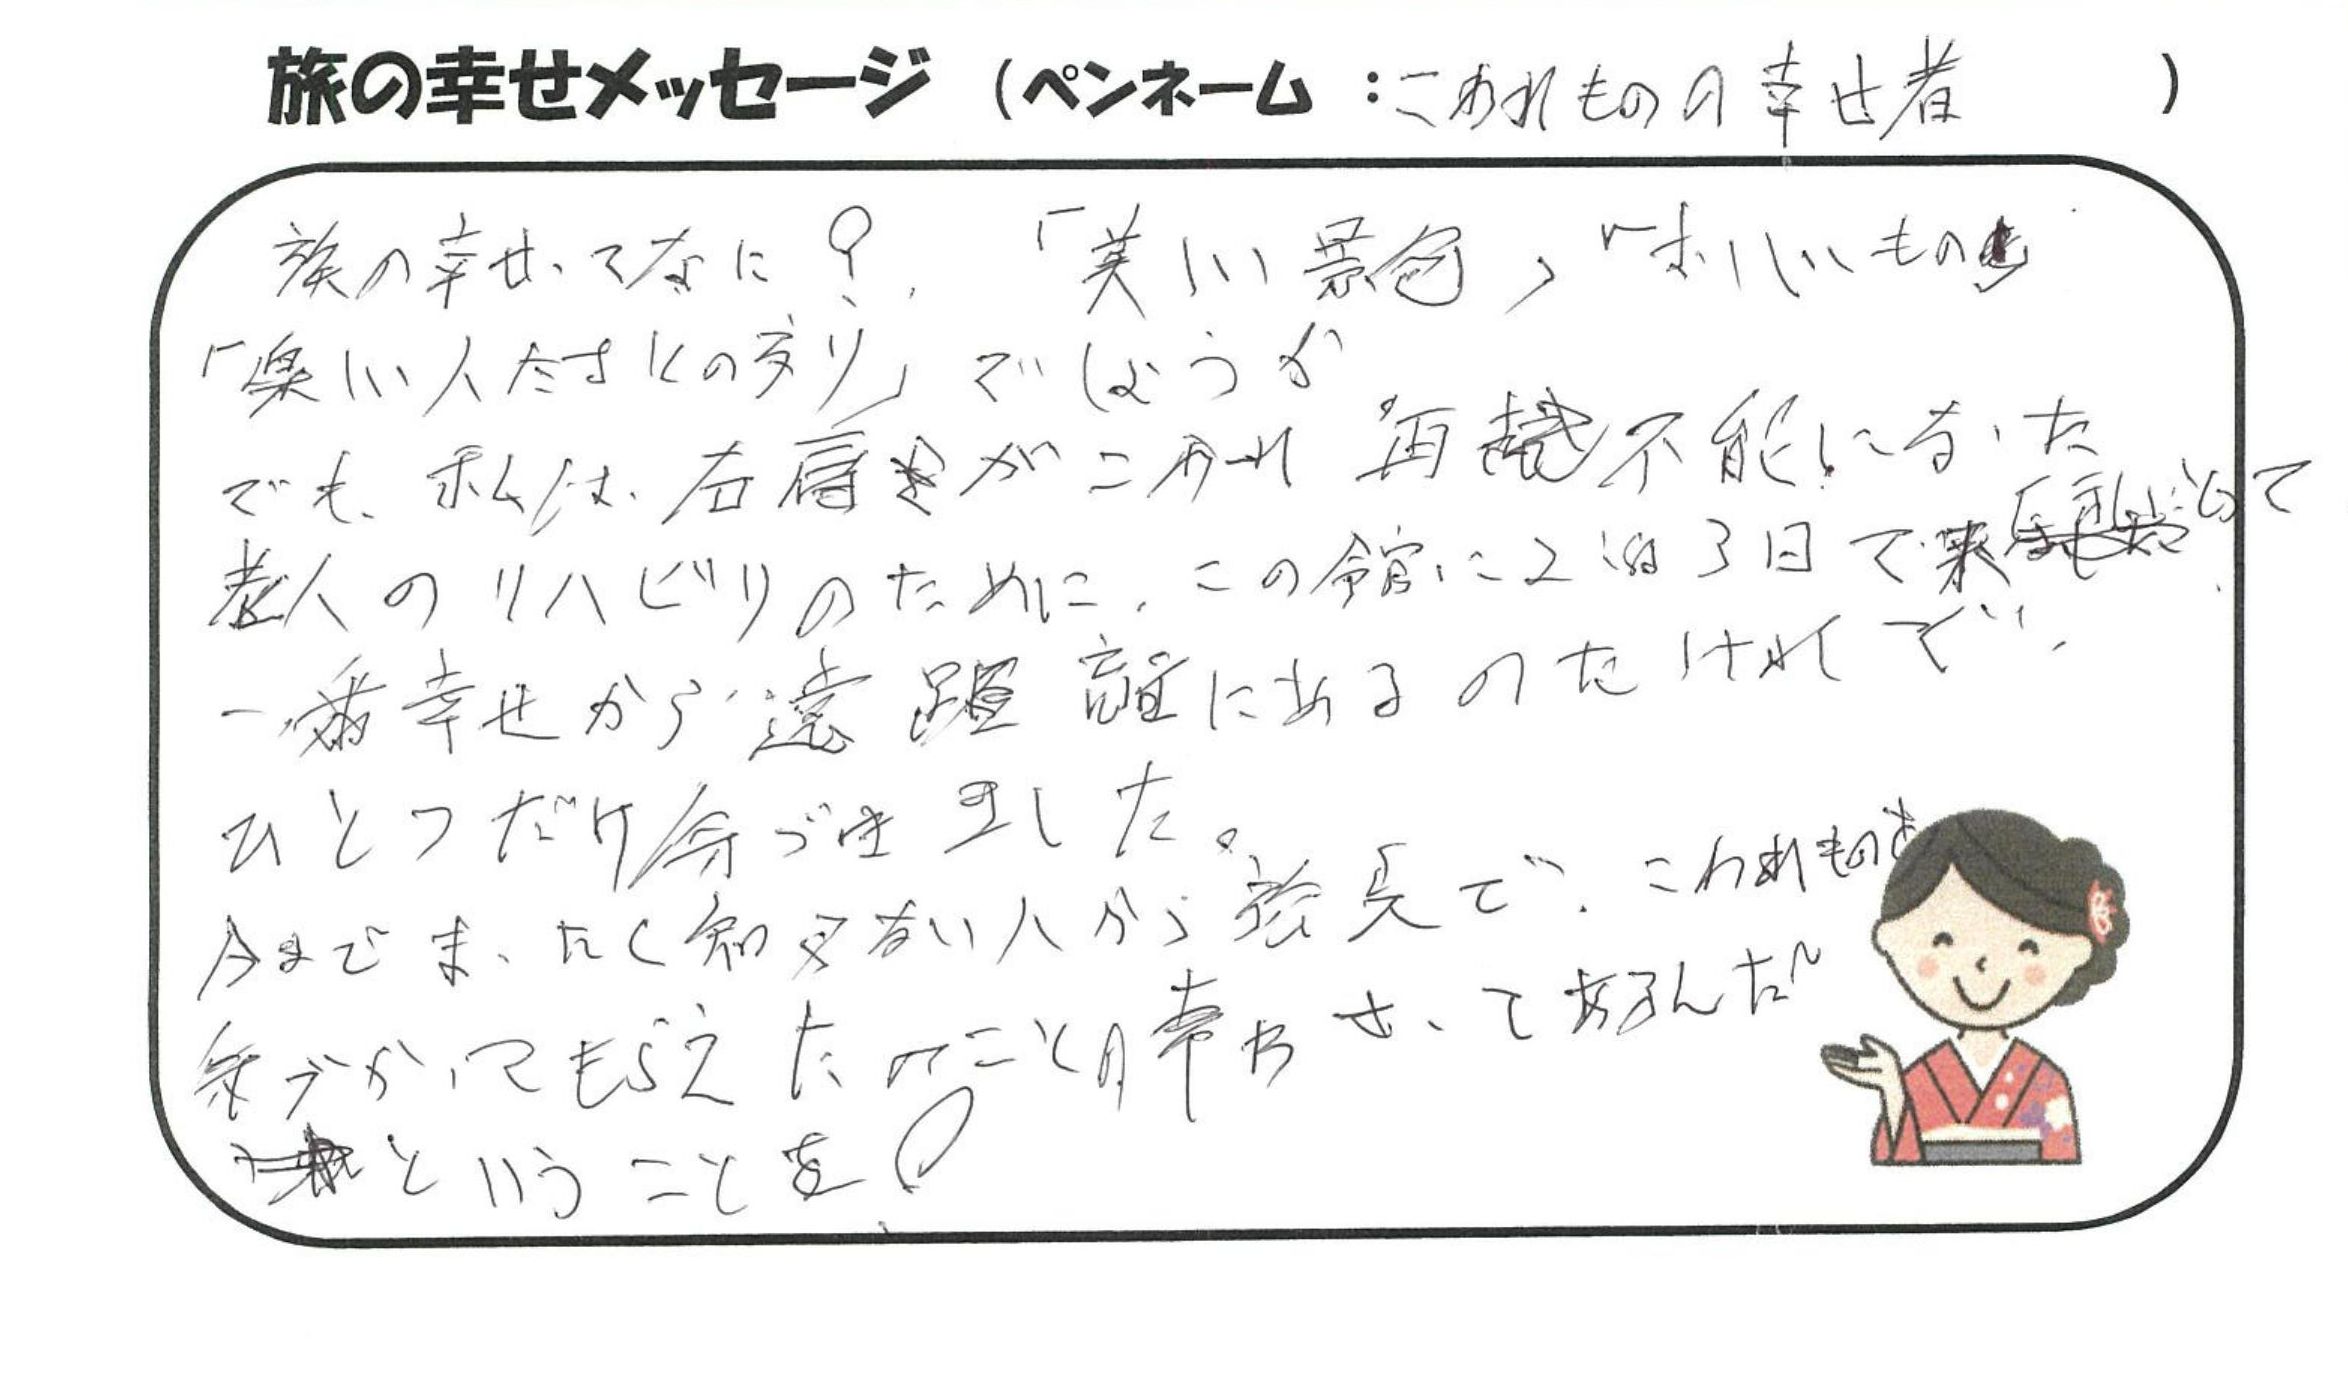 旅の幸せメッセージ (ペンネーム:こわれものの幸せ者 )
旅の幸せってなに? 「美しい景色」「おいしいもの」
「楽しい人たちとの交り」でしょうか
でも、私は、右肩がこわれ再発不能になった
老人のリハビリのために、この館に2泊3日で来
一番幸せから遠距離にあるのだけれど、
ひとつだけ気づきました。
今までまったく知らない人から笑で、こわれものを
気づかってもらえたってことの幸せってあるんだ
ということを!